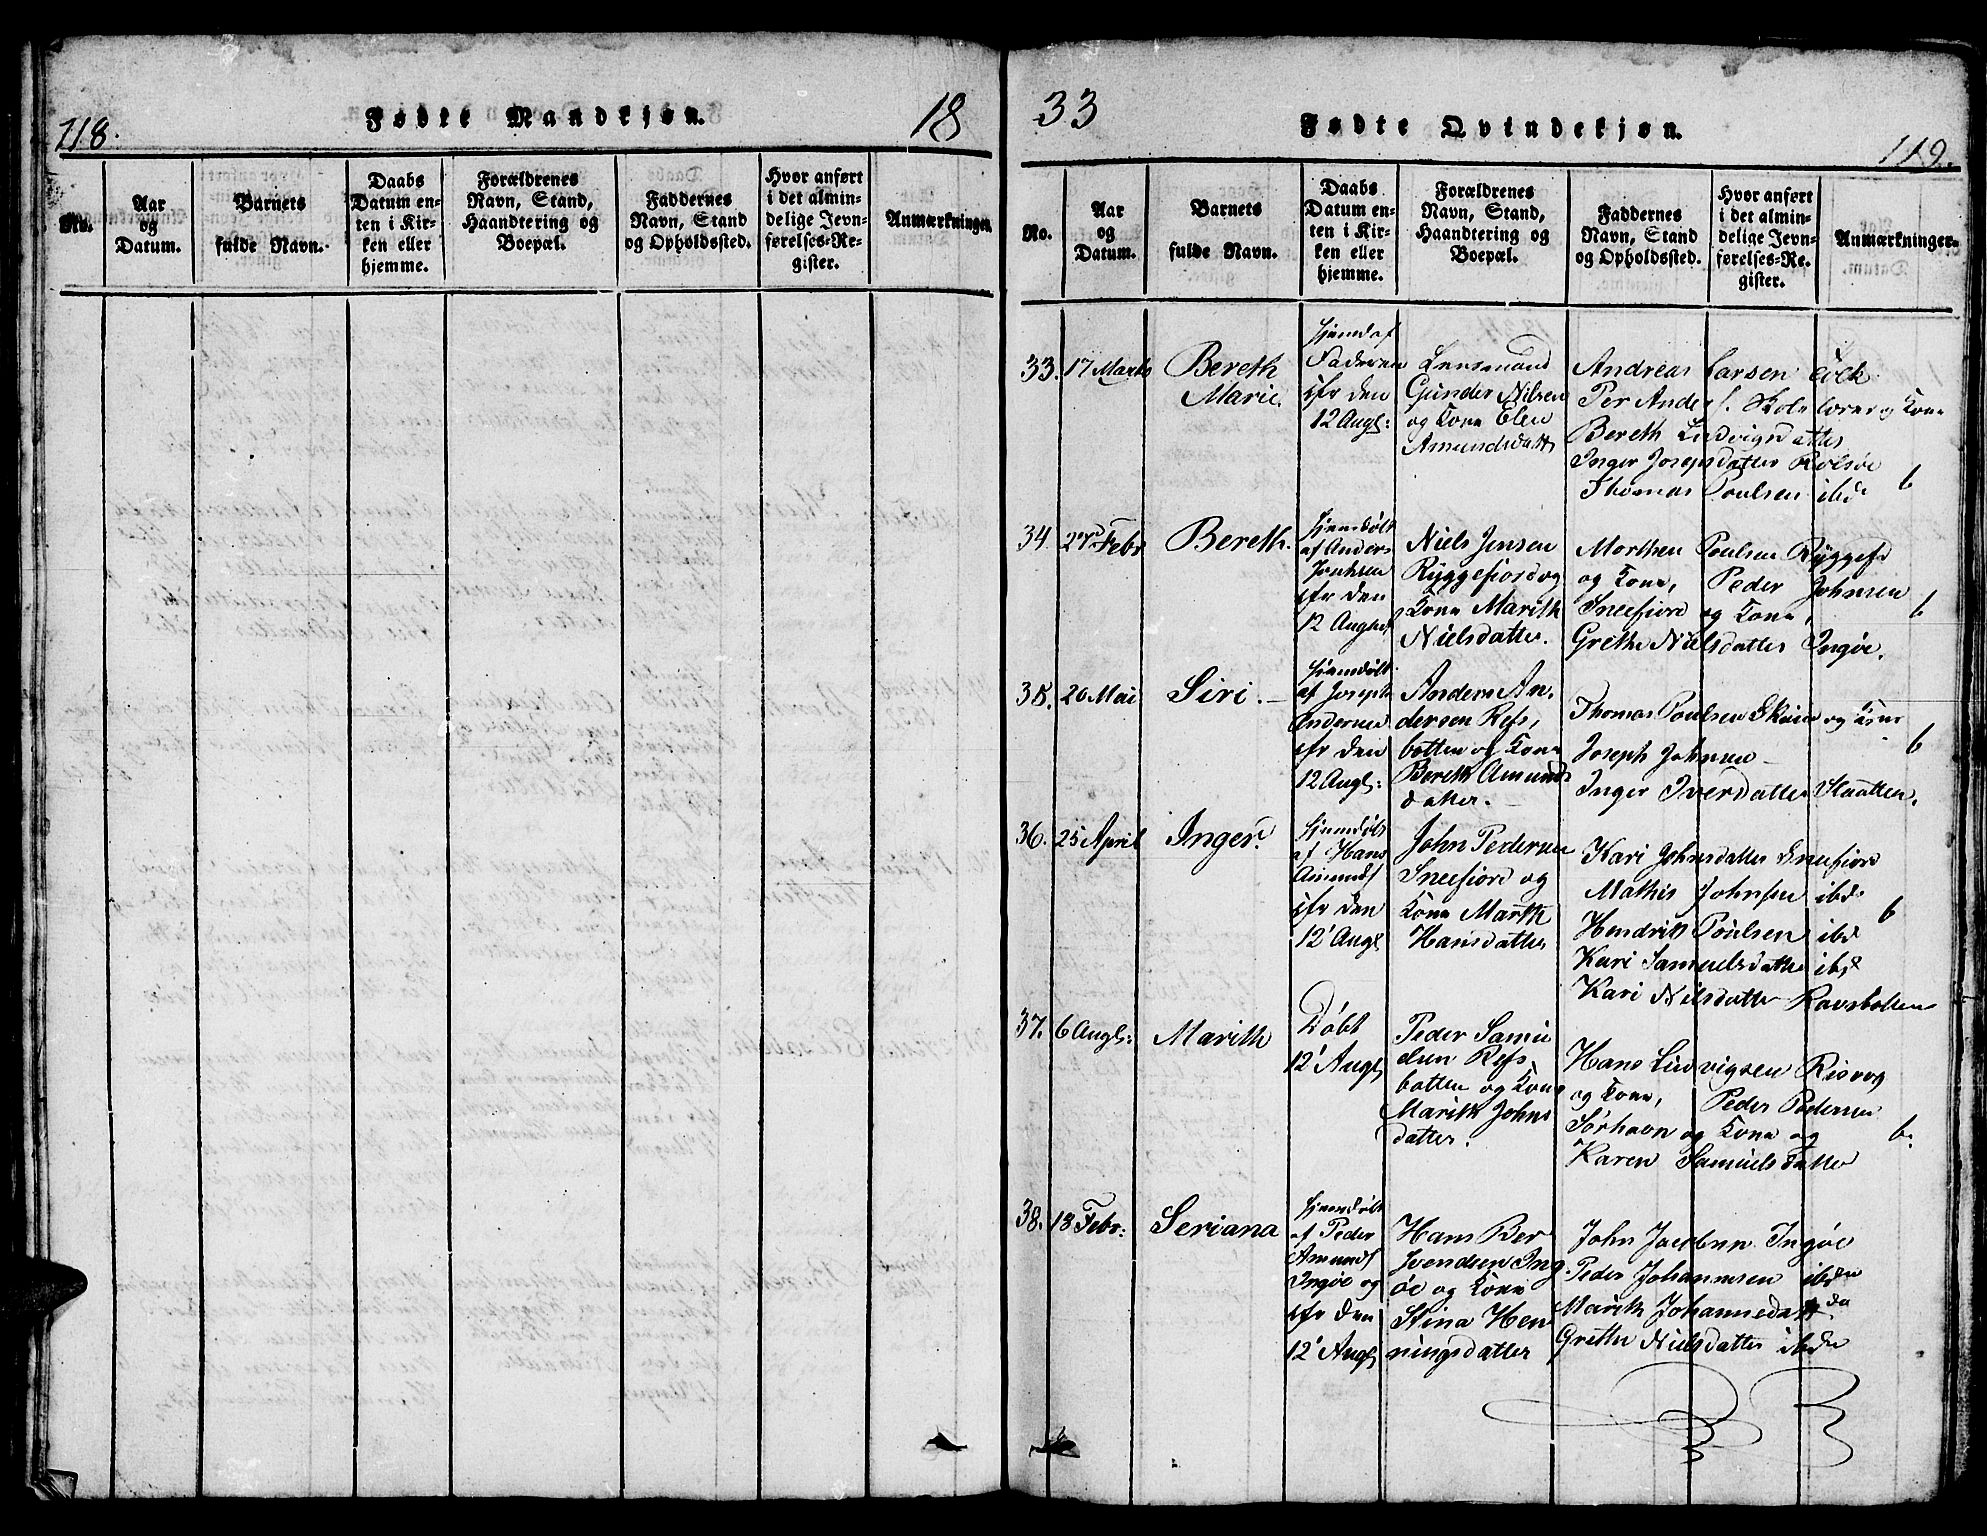 118.
Fødte Mandkjøn.
18
No.
Aar
og
Datum.
Barnets
fulde Navn.
Daabs
Datum en-
ten i Kir-
ken eller
hjemme.
Forældrenes
Navn, Stand,
Haandtering og
Boepæl.
Faddernes
Navn, Stand
og Opholdssted.
Hvor anført
i det almin-
delige Jevn-
førelses-Re-
gister.
Anmærkninger.
33
Fødte Qvindekjøn.
119.
No.
Aar
og
Datum.
Barnets
fulde Navn.
Daabs
Datum en-
ten i Kir-
ken eller
hjemme.
Forældrenes
Navn, Stand,
Haandtering og
Boepæl.
Faddernes
Navn, Stand
og Opholdssted.
Hvor anført
i det almin-
delige Jevn-
førelses-Re-
gister.
Anmærkninger.
33.
17 Marts
Bereth
Marie.
hjemd af
Faderen
ifr den
12 Augs:
Lensmand
Gunder Nilsen
og Kone Elen
Amundsdatt
Andreas Larsen Eock
Per Anders. Skolelærer og Kone
Bereth Ludvigsdatter
Inger Josepsdatter Rolsøe
Thomas Poulsen ibd
6
34
27 Febr
Bereth.
hjemdøbt
af Anders
ifr den
12 August
Niels Jensen
Ryggefiord og
Kone Marith
Nielsdatter.
Morthen Poulsen Ryggefd
og Kone, Peder Johnsen
Sneefiord og Kone,
Grethe Nielsdatter Ingøe.
6
35.
20 Mai
Siri.
hjemdøbt
af Joseph
Andersen
ifr den
12 Augs:
Anders An-
dersen Refs,
botten og Kone
Bereth Amunds
datter.
Thomas Poulsen og Kone
Joseph Johnsen
Inger Iversdatter Slaatten.
6
36.
25 April
Inger.
hjemdøbt
af Hans
Amunds
ifr den
12' Augs
John Pedersen
Sneefiord og
Kone Marith
Hansdatter
Kari Johnsdatter Sneefiord
Mathis Johnsen ibd
Hendrik Poulsen ibd
Kari Samuelsdatter ibd
Kari Nilsdatter Ravsbotten
6
37.
6 Augs:
Marith
Døbt
12' Augs
Peder Samu
elsen Refs,
botten og Kone
Marith Johns
datter.
Hans Ludvigsen Risvog
og Kone, Peder Pedersen
Sørhavn og Kone og
Karen Samuels Datter
6.
38.
13 Febr:
Seriana
hjemdøbt
af Peder
Amunds
Ingøe og
ifr den
12' Augs
Hans Ber
Svendsen Ing
øe og Kone
Stina Hen
ningsdatter
John Jacobsen Ingøe
Peder Johannesen ibden
Marith Johannesdatter
Grethe Nielsdatter ibden